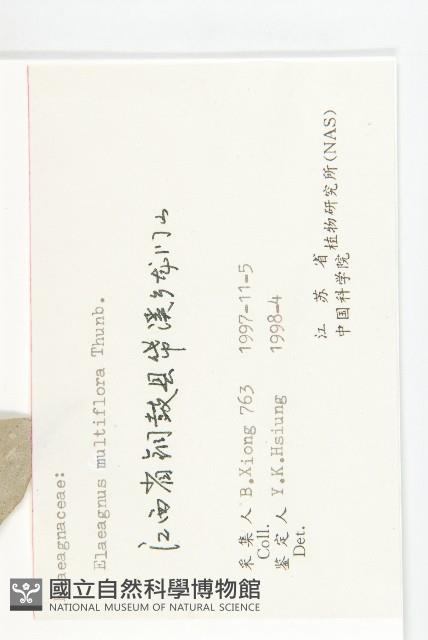 Elaeagnaceae:
Elaeagnus multiflora Thunb.
江西省铜鼓县带溪乡龙门山
采集人 B.Xiong 763 1997-11-5
Coll.
鉴定人 Y.K.Hsiung 1998-4
Det.
江苏省植物研究所(NAS)
中国科学院
國立自然科學博物館
NATIONAL MUSEUM OF NATURAL SCIENCE